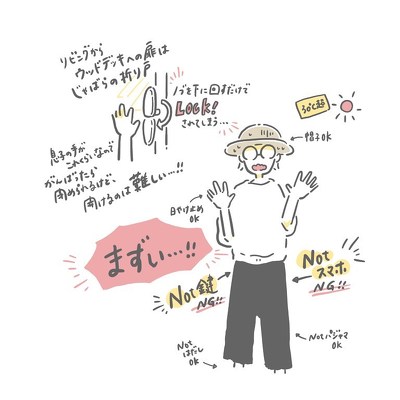 リビングから
ウッドデッキへの扉は
じゃばらの折り戸
ノブを下に回すだけで
LOCK!
されてしまう…
30℃超
息子の手が
これくらいなので
がんばったら
閉められるけど、
開けるのは難しい…!!
帽子OK
日やけ止め
OK
まずい…!!
Not鍵
NG!!
Not
スマホ
NG!!
Not
はだし
OK
Notパジャマ
OK